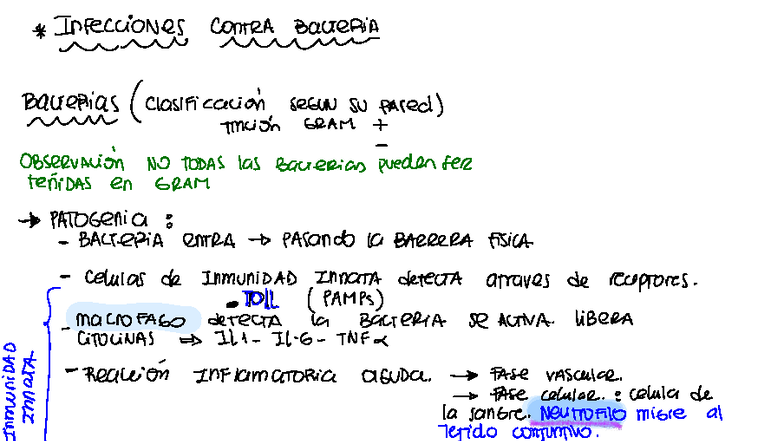 * INFECCIONES CONTRA BACTERIA
BACTERIAS (CLASIFICACIÓN SEGUN SU PARED)
TINCIÓN GRAM +
-
OBSERVACIÓN NO TODAS LAS BACTERIAS PUEDEN SER
TEÑIDAS EN GRAM
→ PATOGENIA :
- BACTERIA ENTRA → PASANDO LA BARRERA FISICA
- CELULAS DE INMUNIDAD INNATA DETECTA ATRAVES DE RECEPTORES.
• TOLL (PAMPs)
- MACROFAGO DETECTA LA BACTERIA SE ACTIVA. LIBERA
CITOCINAS ⇒ IL1 - IL-6 - TNFα
- REACCIÓN INFLAMATORIA AGUDA. → FASE VASCULAR.
→ FASE CELULAR. : CELULA DE
LA SANGRE. NEUTROFILO MIGRE AL
TEJIDO CONJUNTIVO.
INMUNIDAD
INNATA